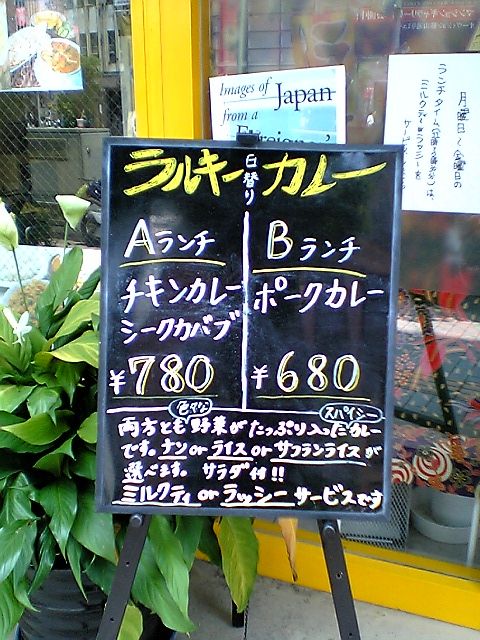 Images of
Japan
from a
Foreigner's
月曜日〜金曜日の
ランチタイムは、
ラルキーカレー
日替り
Aランチ
チキンカレー
シークカバブ
¥780
Bランチ
ポークカレー
¥680
色々な
スパイシー
両方とも野菜がたっぷり入ったカレー
です。ナンorライスorサフランライスが
選べます。サラダ付!!
ミルクティorラッシーサービスです